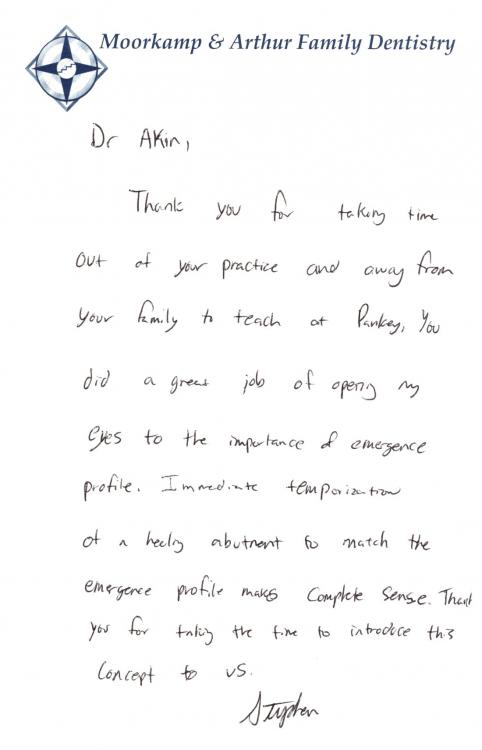 Moorkamp & Arthur Family Dentistry
Dr Akin,
Thank you for taking time
out of your practice and away from
your family to teach at Pankey, You
did a great job of opening my
eyes to the importance of emergence
profile. Immediate temporization
of a healing abutment to match the
emergence profile makes complete sense. Thank
you for taking the time to introduce this
concept to us.
Stephen